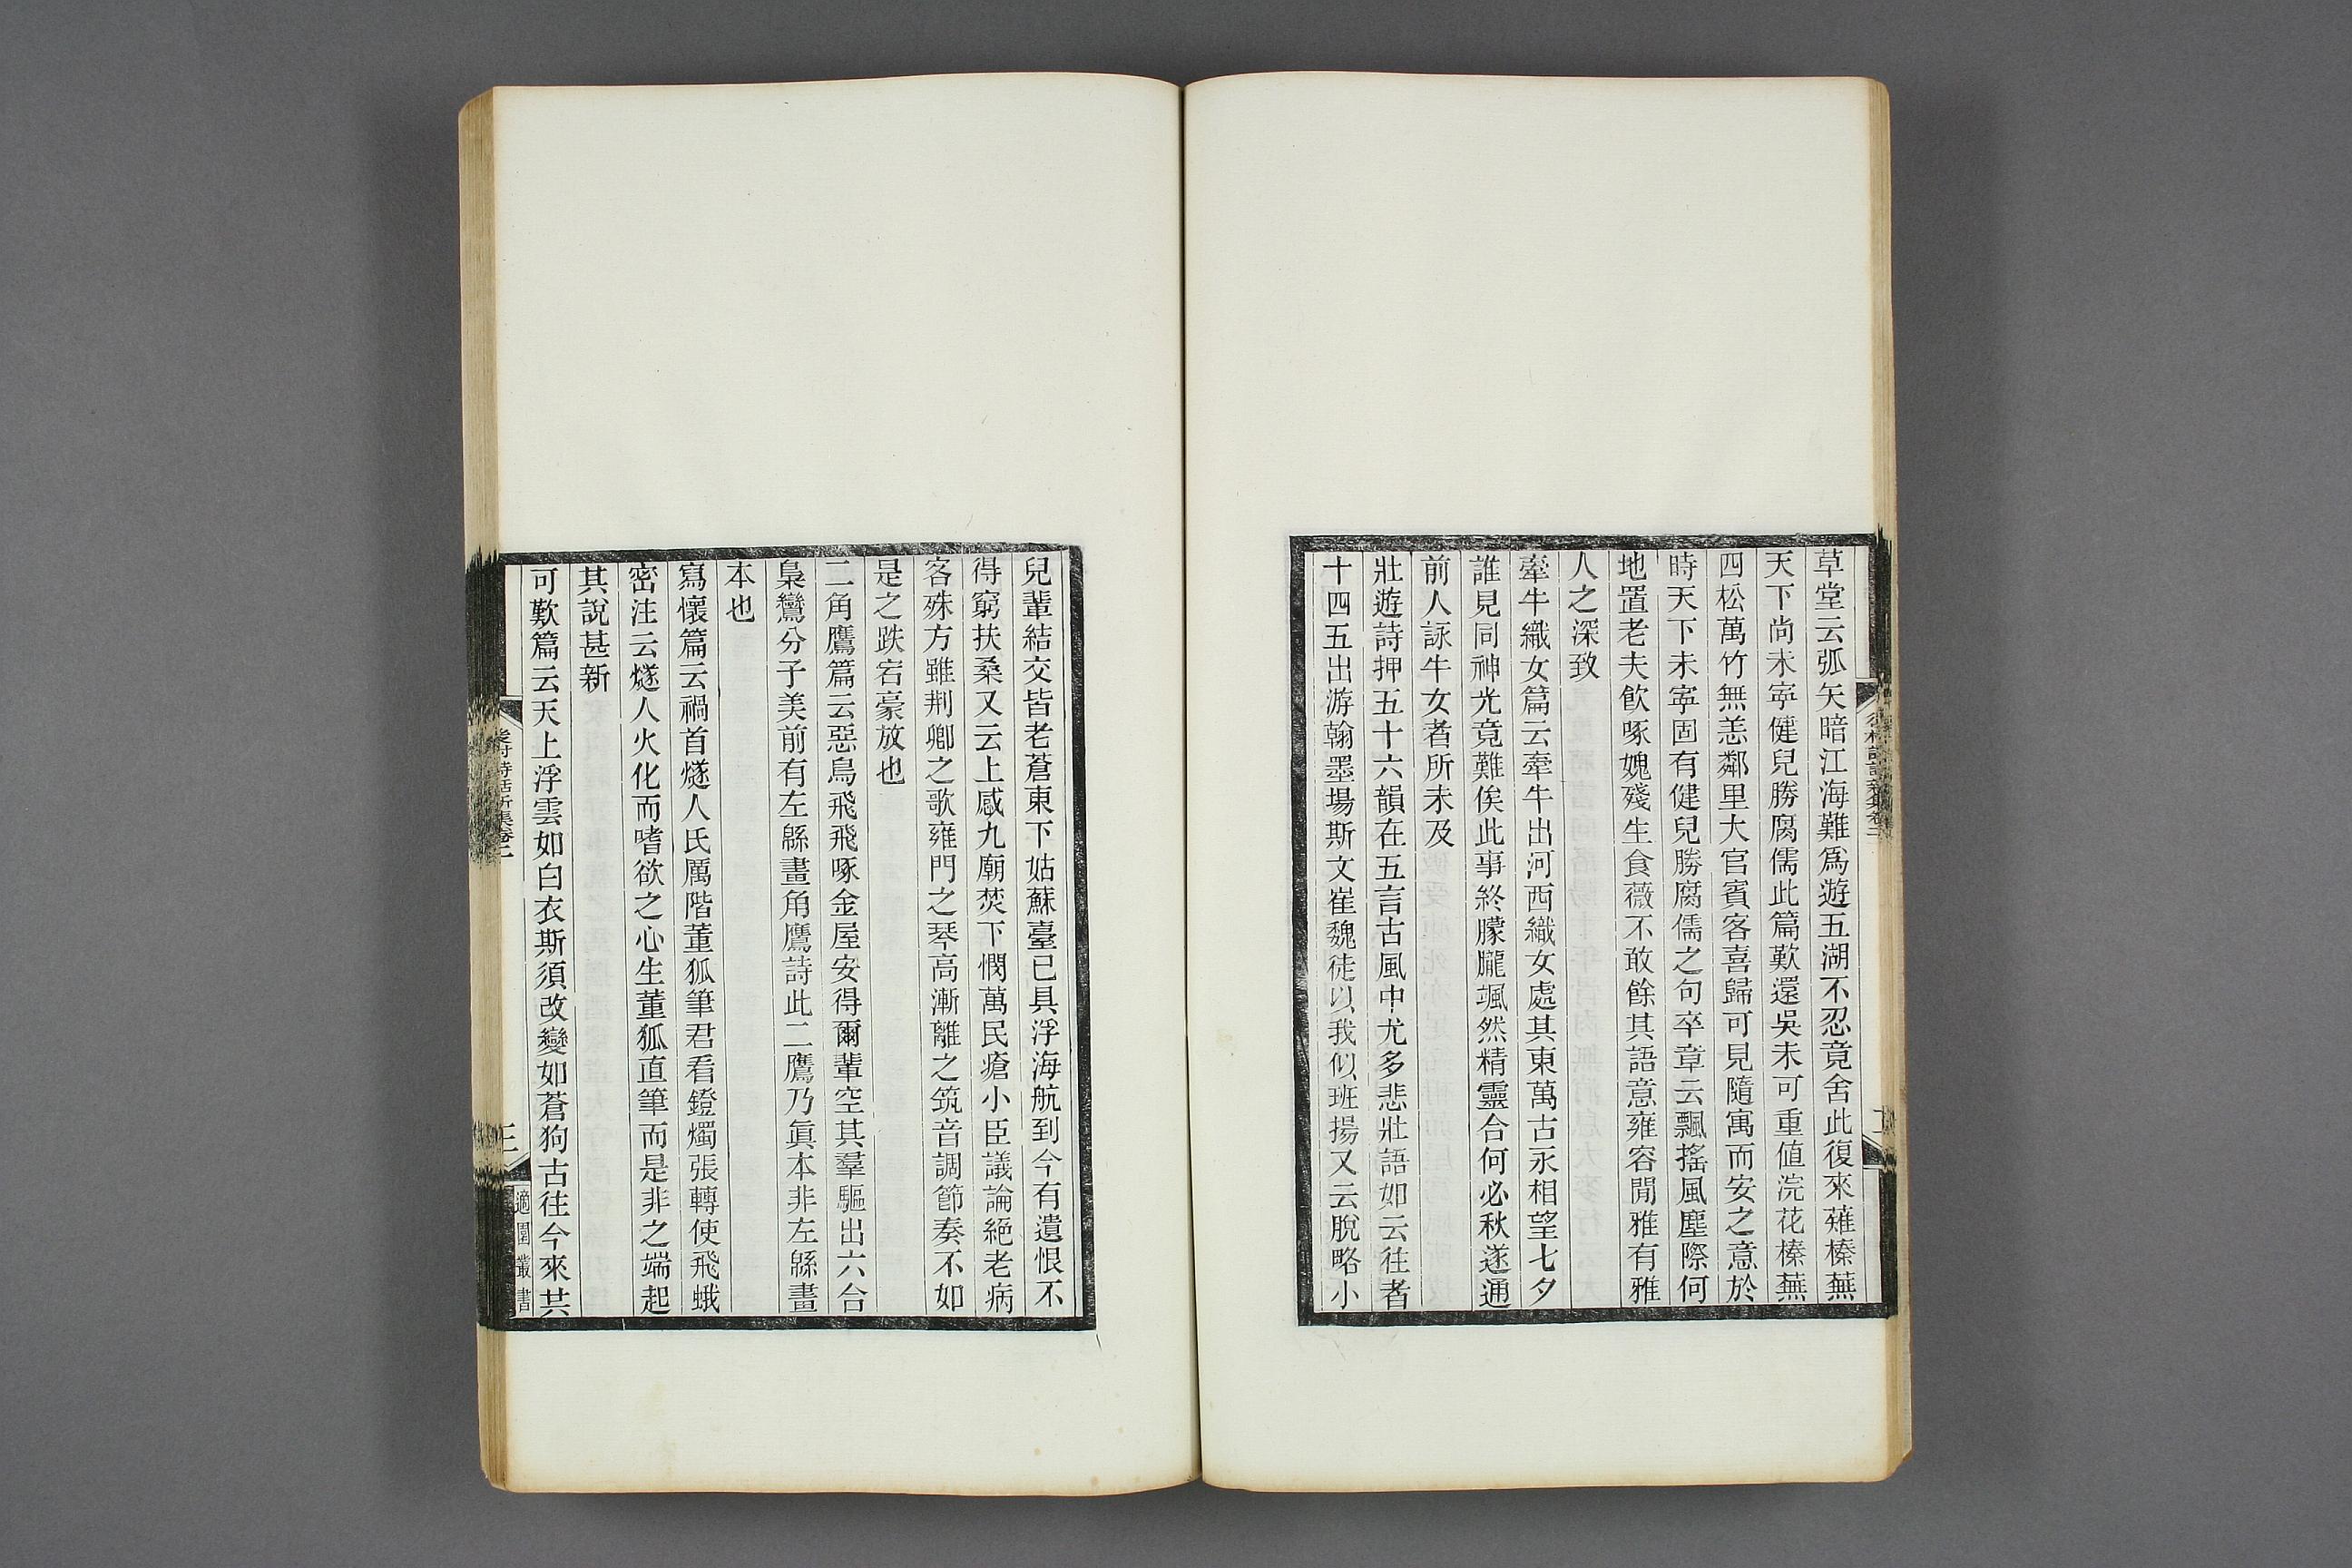 草堂云弧矢暗江海難爲遊五湖不忍竟舍此復來薙榛蕪
天下尚未寧健兒勝腐儒此篇歎還吳未可重値浣花榛蕪
四松萬竹無恙鄰里大官賓客喜歸可見隨寓而安之意於
時天下未寧固有健兒勝腐儒之句卒章云飄搖風塵際何
地置老夫飮啄媿殘生食薇不敢餘其語意雍容閒雅有雅
人之深致
牽牛織女篇云牽牛出河西織女處其東萬古永相望七夕
誰見同神光竟難俟此事終朦朧颯然精靈合何必秋遂通
前人詠牛女者所未及
壯遊詩押五十六韻在五言古風中尤多悲壯語如云往者
十四五出游翰墨場斯文崔魏徒以我似班揚又云脫略小
兒輩結交皆老蒼東下姑蘇臺已具浮海航到今有遺恨不
得窮扶桑又云上感九廟焚下憫萬民瘡小臣議論絕老病
客殊方雖荆卿之歌雍門之琴高漸離之筑音調節奏不如
是之跌宕豪放也
二角鷹篇云惡鳥飛飛啄金屋安得爾輩空其羣驅出六合
梟鸞分子美前有左緜畫角鷹詩此二鷹乃眞本非左緜畫
本也
寫懷篇云禍首燧人氏厲階董狐筆君看鐙燭張轉使飛蛾
密注云燧人火化而嗜欲之心生董狐直筆而是非之端起
其說甚新
可歎篇云天上浮雲如白衣斯須改變如蒼狗古往今來共
後村詩話新集卷二
三
適園叢書